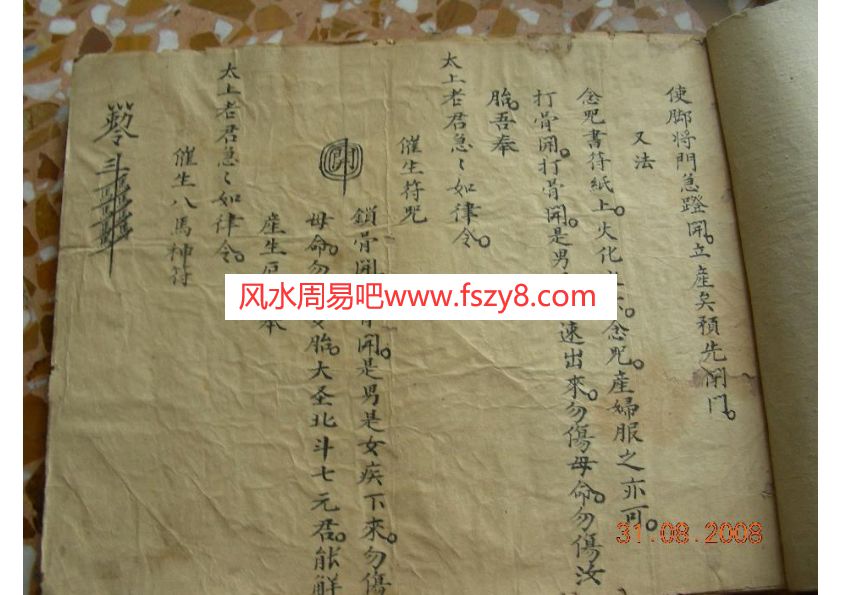 使脚将門急蹬開。立產矣預先開门。
又法
念咒書符紙上。火化。念咒。產婦服之亦可。
打骨開。打骨開。是男速出來。勿傷母命。勿傷汝
胎。吾奉
太上老君急〻如律令。
催生符咒
鎖骨開骨開。是男是女疾下來。勿傷
母命。勿胎。大圣北斗七元君。能解
産生
太上老君急〻如律令。
催生八馬神符
风水周易吧www.fszy8.com
31.08.2008